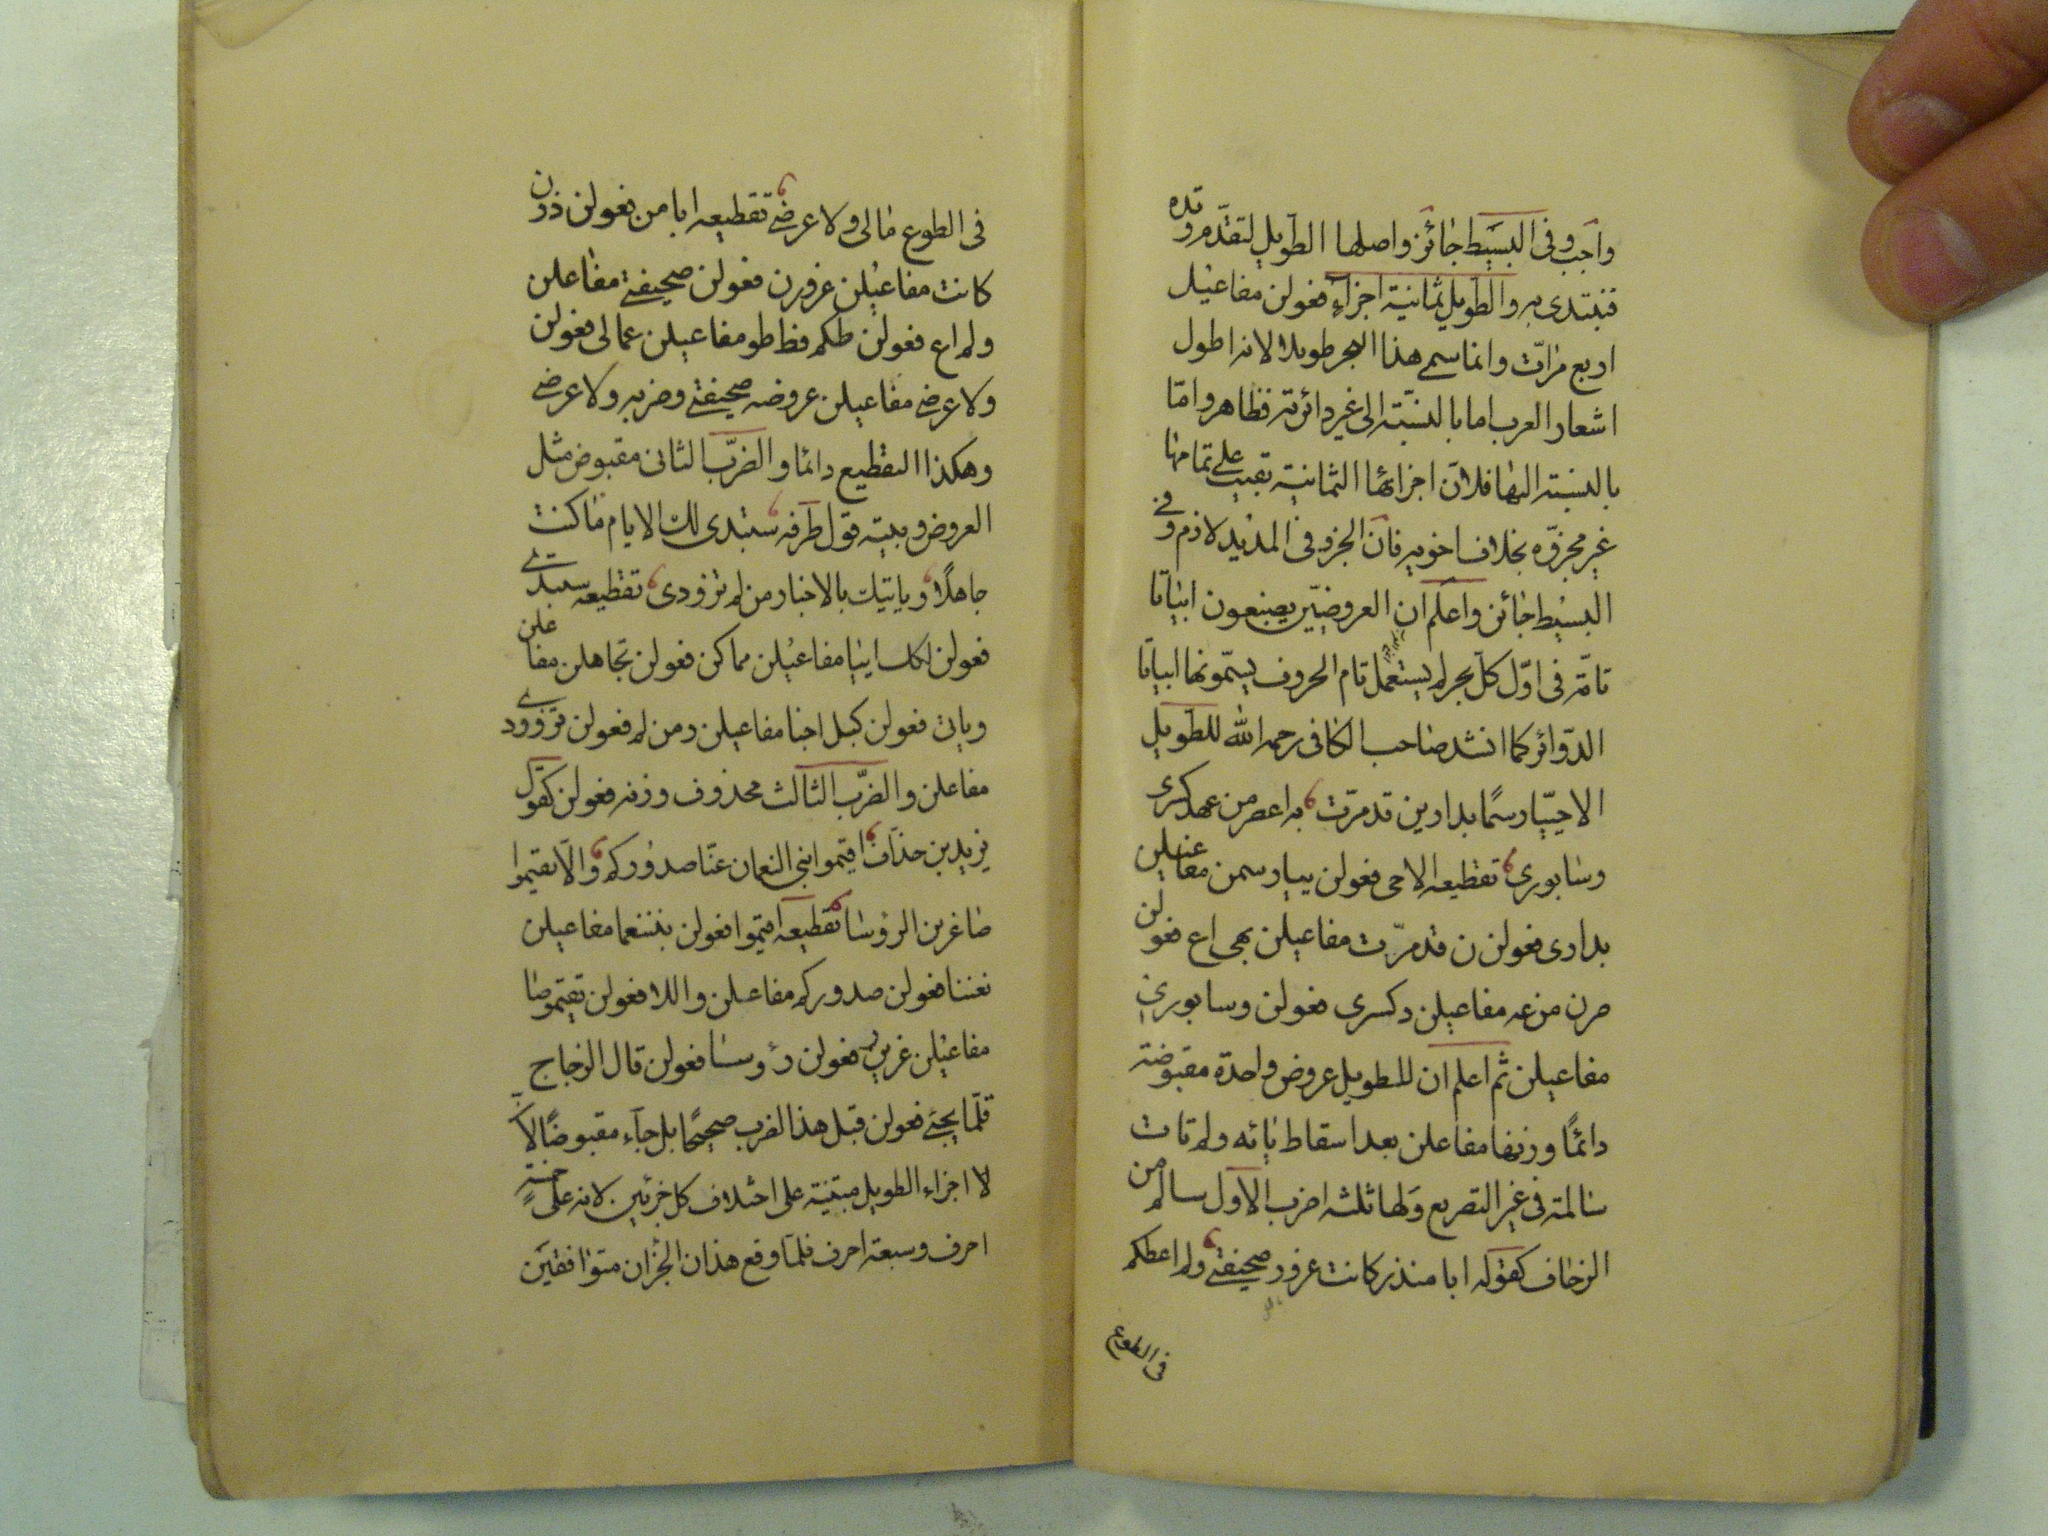 واجب وفى البسيط جائز واصلها الطويل لتقدم وتده
فنبتدى به والطويل ثمانية اجزاء فعولن مفاعيلن
اربع مرات وانما سمى هذا البحر طويلا لانه اطول
اشعار العرب اما بالنسبة الى غير دائرته فظاهر واما
بالنسبة اليها فلان اجزائها الثمانية تقيت على تمامها
غير مجزوه بخلاف اخويه فان الجزو فى المديد لازم وفى
البسيط جائز واعلم ان العروضيين يصنعون ابياتا
تامة فى اول كل بحر لم يستعمل تام الحروف يسمونها ابياتا
الدوائر كما انشد صاحب الكافى رحمه الله للطويل
الاحيّيا رسما بدارين قد مرّت به اعصر من عهد كسرى
وسابورى تقطيعه الاحى فعولن ييارسمن مفاعيلن
بدارى فعولن ن قد مرّت مفاعيلن بهى اع فعولن
صرن من عه مفاعيلن د كسرى فعولن وسابورى
مفاعيلن ثم اعلم ان للطويل عروض واحدة مقبوضة
دائما وزنها مفاعلن بعد اسقاط يائه ولم تات
سالمة فى غير التصريع ولها ثلثه اضرب الاول سالم من
الزحاف كقوله ابا منذر كانت غرور صحيفتى ولم اعطكم
فى الطوع
فى الطوع مالى ولا عرضى تقطيعه ابا من فعولن ذرن
كانت مفاعيلن غرورن فعولن صحيفتى مفاعلن
ولم اع فعولن طكم فط طو مفاعيلن عما لى فعولن
ولا عرضى مفاعيلن عروضه صحيفتى وضربه ولا عرضى
وهكذا التقطيع دائما والضرب الثانى مقبوض مثل
العروض وبيته قول طرفه ستبدى لك الايام ما كنت
جاهلا وياتيك بالاخبار من لم تزودى تقطيعه ستبدى
فعولن لكل ايّيا مفاعيلن مماكن فعولن تجاهلن مفاعلن
وياتى فعولن كبل اخبا مفاعيلن رمن لم فعولن تزوودى
مفاعلن والضرب الثالث محذوف وزنه فعولن كقول
يزيد بن حذاف اقيموا بنى النعمان عنا صدوركم والا تقيموا
صاغرين الرؤسا تقطيعه اقيموا فعولن بننعما مفاعيلن
نعننا فعولن صدوركم مفاعلن واللا فعولن تقيموصا
مفاعيلن غرير فعولن رءوسا فعولن قال الزجاج
قلما يجئ فعولن قبل هذا الضرب صحيحا بل جاء مقبوضا لان
لا اجزاء الطويل مبتنية على اختلاف كل جزئين لانه على خمسة
احرف وسبعة احرف فلما وقع هذان الجزان متوافقين